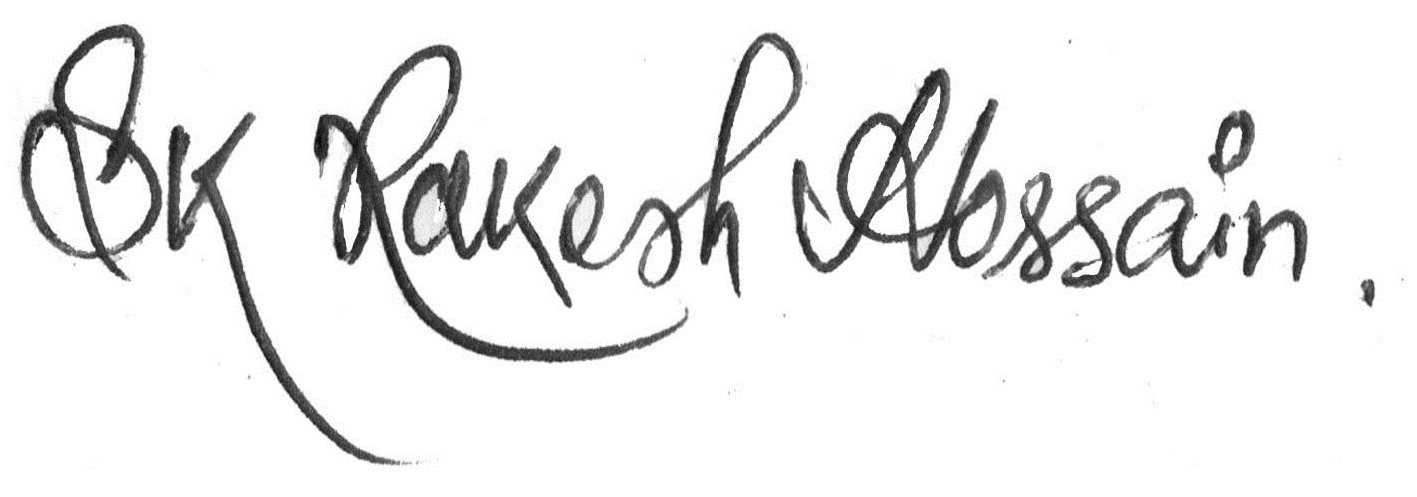 SK Rakesh Hossain.